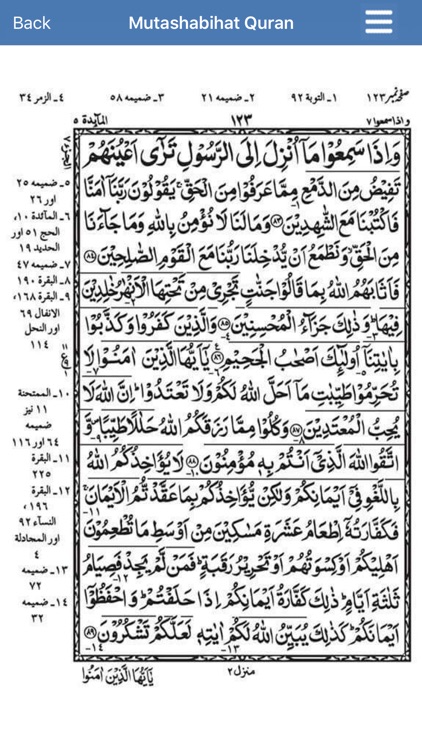 Back
Mutashabihat Quran
صفحہ نمبر ۱۲۳
۱ـ التوبة ۹۲
۲ـ ضمیمہ ۲۱
۳ـ ضمیمہ ۵۸
۴ـ الزمر ۳۴
واذا سمعوا ۷
۱۲۳
المآیدة ۵
وَاِذَا سَمِعُوْا مَاۤ اُنْزِلَ اِلَى الرَّسُوْلِ تَرٰۤى اَعْيُنَهُمْ
تَفِيْضُ مِنَ الدَّمْعِ مِمَّا عَرَفُوْا مِنَ الْحَقِّ ۚ يَقُوْلُوْنَ رَبَّنَاۤ اٰمَنَّا
فَاكْتُبْنَا مَعَ الشّٰهِدِيْنَ ۝۸۳ وَمَا لَنَا لَا نُؤْمِنُ بِاللّٰهِ وَمَا جَآءَنَا
مِنَ الْحَقِّ ۙ وَنَطْمَعُ اَنْ يُّدْخِلَنَا رَبُّنَا مَعَ الْقَوْمِ الصّٰلِحِيْنَ ۝۸۴
فَاَثَابَهُمُ اللّٰهُ بِمَا قَالُوْا جَنّٰتٍ تَجْرِيْ مِنْ تَحْتِهَا الْاَنْهٰرُ خٰلِدِيْنَ
فِيْهَا ؕ وَذٰلِكَ جَزَآءُ الْمُحْسِنِيْنَ ۝۸۵ وَالَّذِيْنَ كَفَرُوْا وَكَذَّبُوْا
بِاٰيٰتِنَاۤ اُولٰٓئِكَ اَصْحٰبُ الْجَحِيْمِ ۝۸۶ يٰۤاَيُّهَا الَّذِيْنَ اٰمَنُوْا لَا
تُحَرِّمُوْا طَيِّبٰتِ مَاۤ اَحَلَّ اللّٰهُ لَكُمْ وَلَا تَعْتَدُوْا ؕ اِنَّ اللّٰهَ لَا
يُحِبُّ الْمُعْتَدِيْنَ ۝۸۷ وَكُلُوْا مِمَّا رَزَقَكُمُ اللّٰهُ حَلٰلًا طَيِّبًا ۪ وَّ
اتَّقُوا اللّٰهَ الَّذِيْۤ اَنْتُمْ بِهٖ مُؤْمِنُوْنَ ۝۸۸ لَا يُؤَاخِذُكُمُ اللّٰهُ
بِاللَّغْوِ فِيْۤ اَيْمَانِكُمْ وَلٰكِنْ يُّؤَاخِذُكُمْ بِمَا عَقَّدْتُّمُ الْاَيْمَانَ ۚ
فَكَفَّارَتُهٗۤ اِطْعَامُ عَشَرَةِ مَسٰكِيْنَ مِنْ اَوْسَطِ مَا تُطْعِمُوْنَ
اَهْلِيْكُمْ اَوْ كِسْوَتُهُمْ اَوْ تَحْرِيْرُ رَقَبَةٍ ؕ فَمَنْ لَّمْ يَجِدْ فَصِيَامُ
ثَلٰثَةِ اَيَّامٍ ؕ ذٰلِكَ كَفَّارَةُ اَيْمَانِكُمْ اِذَا حَلَفْتُمْ ؕ وَاحْفَظُوْۤا
اَيْمَانَكُمْ ؕ كَذٰلِكَ يُبَيِّنُ اللّٰهُ لَكُمْ اٰيٰتِهٖ لَعَلَّكُمْ تَشْكُرُوْنَ ۝۸۹
۵ـ ضمیمہ ۲۵
اور ۲۶
۶ـ المآئدة ۱۰،
الحج ۵۱ اور
الحدید ۱۹
۷ـ ضمیمہ ۴۷
۸ـ البقرة ۱۹۰
۹ـ البقرة ۱۶۸،
الانفال ۶۹
اور النحل
۱۱۴
۱۰ـ الممتحنة
۱۱ نیز
ضمیمہ
۶۴ اور ۱۱۶
۱۱ـ البقرة
۲۲۵
۱۲ـ البقرة
۱۹۶،
النساء ۹۲
اور المجادلة
۴
۱۳ـ ضمیمہ
۷۲
۱۴ـ ضمیمہ
۳۲
منزل ۲
يٰۤاَيُّهَا الَّذِيْنَ اٰمَنُوْا